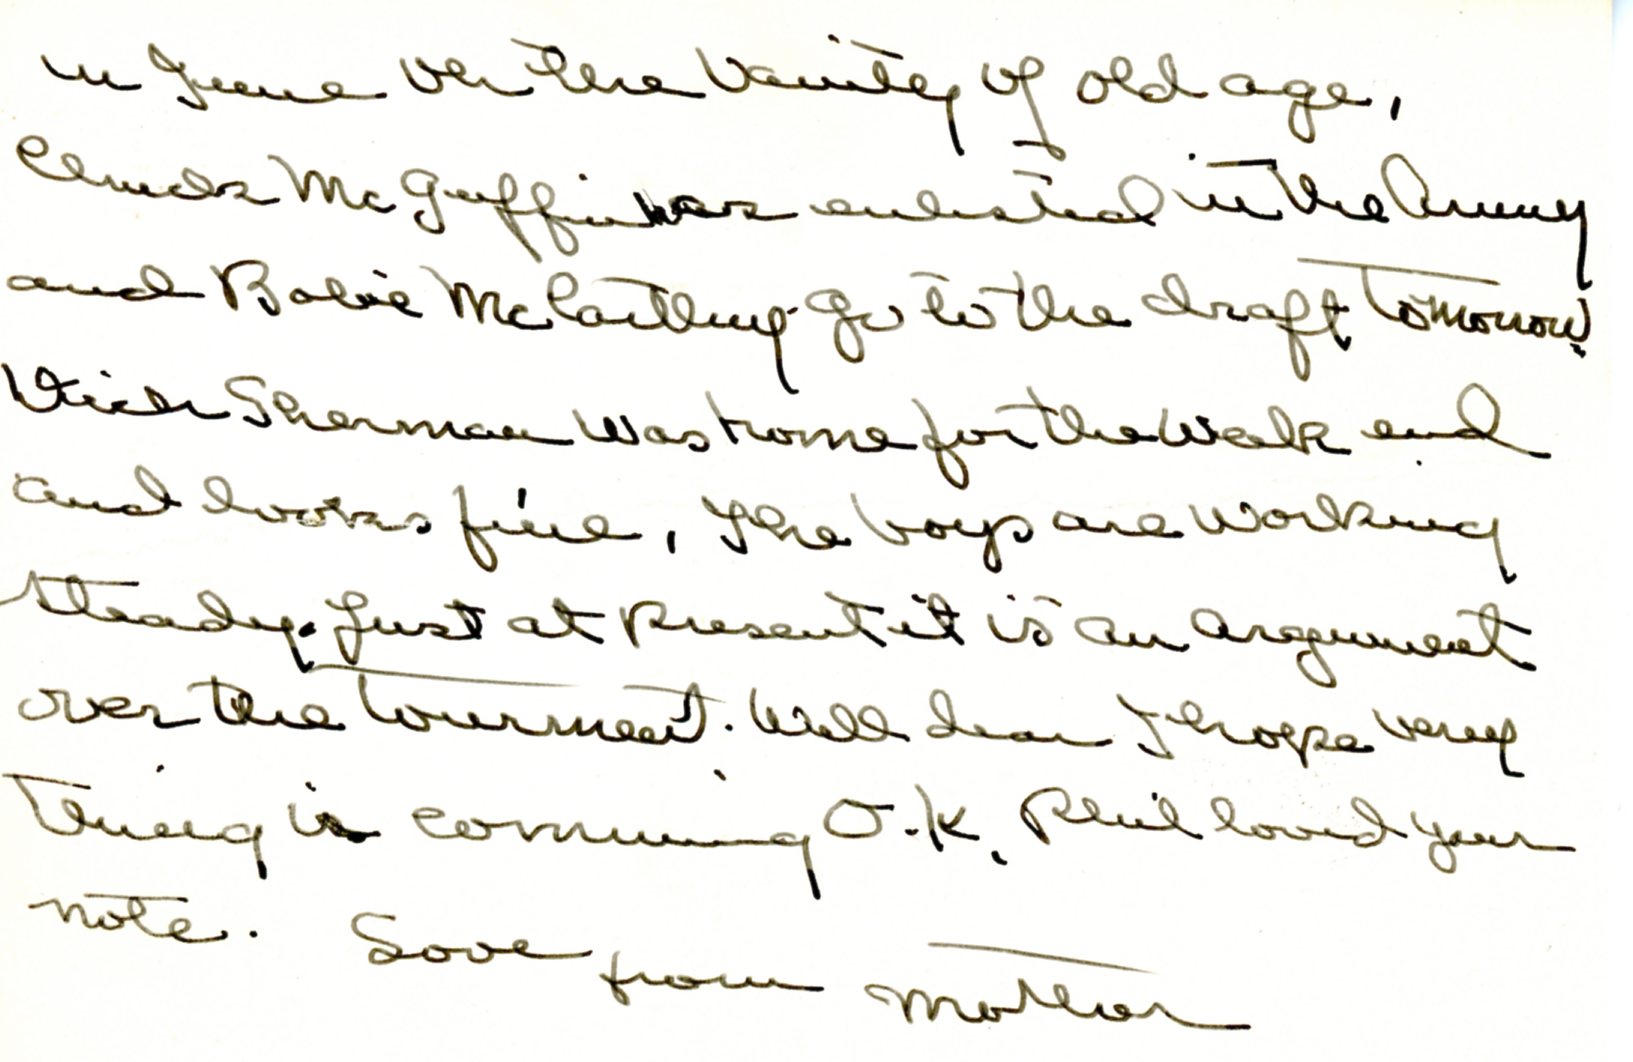 in June on the Vanity of old age.
Chuck McGuffin has enlisted in the Army
and Bobie McCarthy go to the draft tomorrow.
Sherman was home for the week end
and looks fine. The boys are working
steady. Just at present it is an argument
over the tourment. Well dear I hope very
thing is comming O.K. Phil loved your
note. Love from Mother